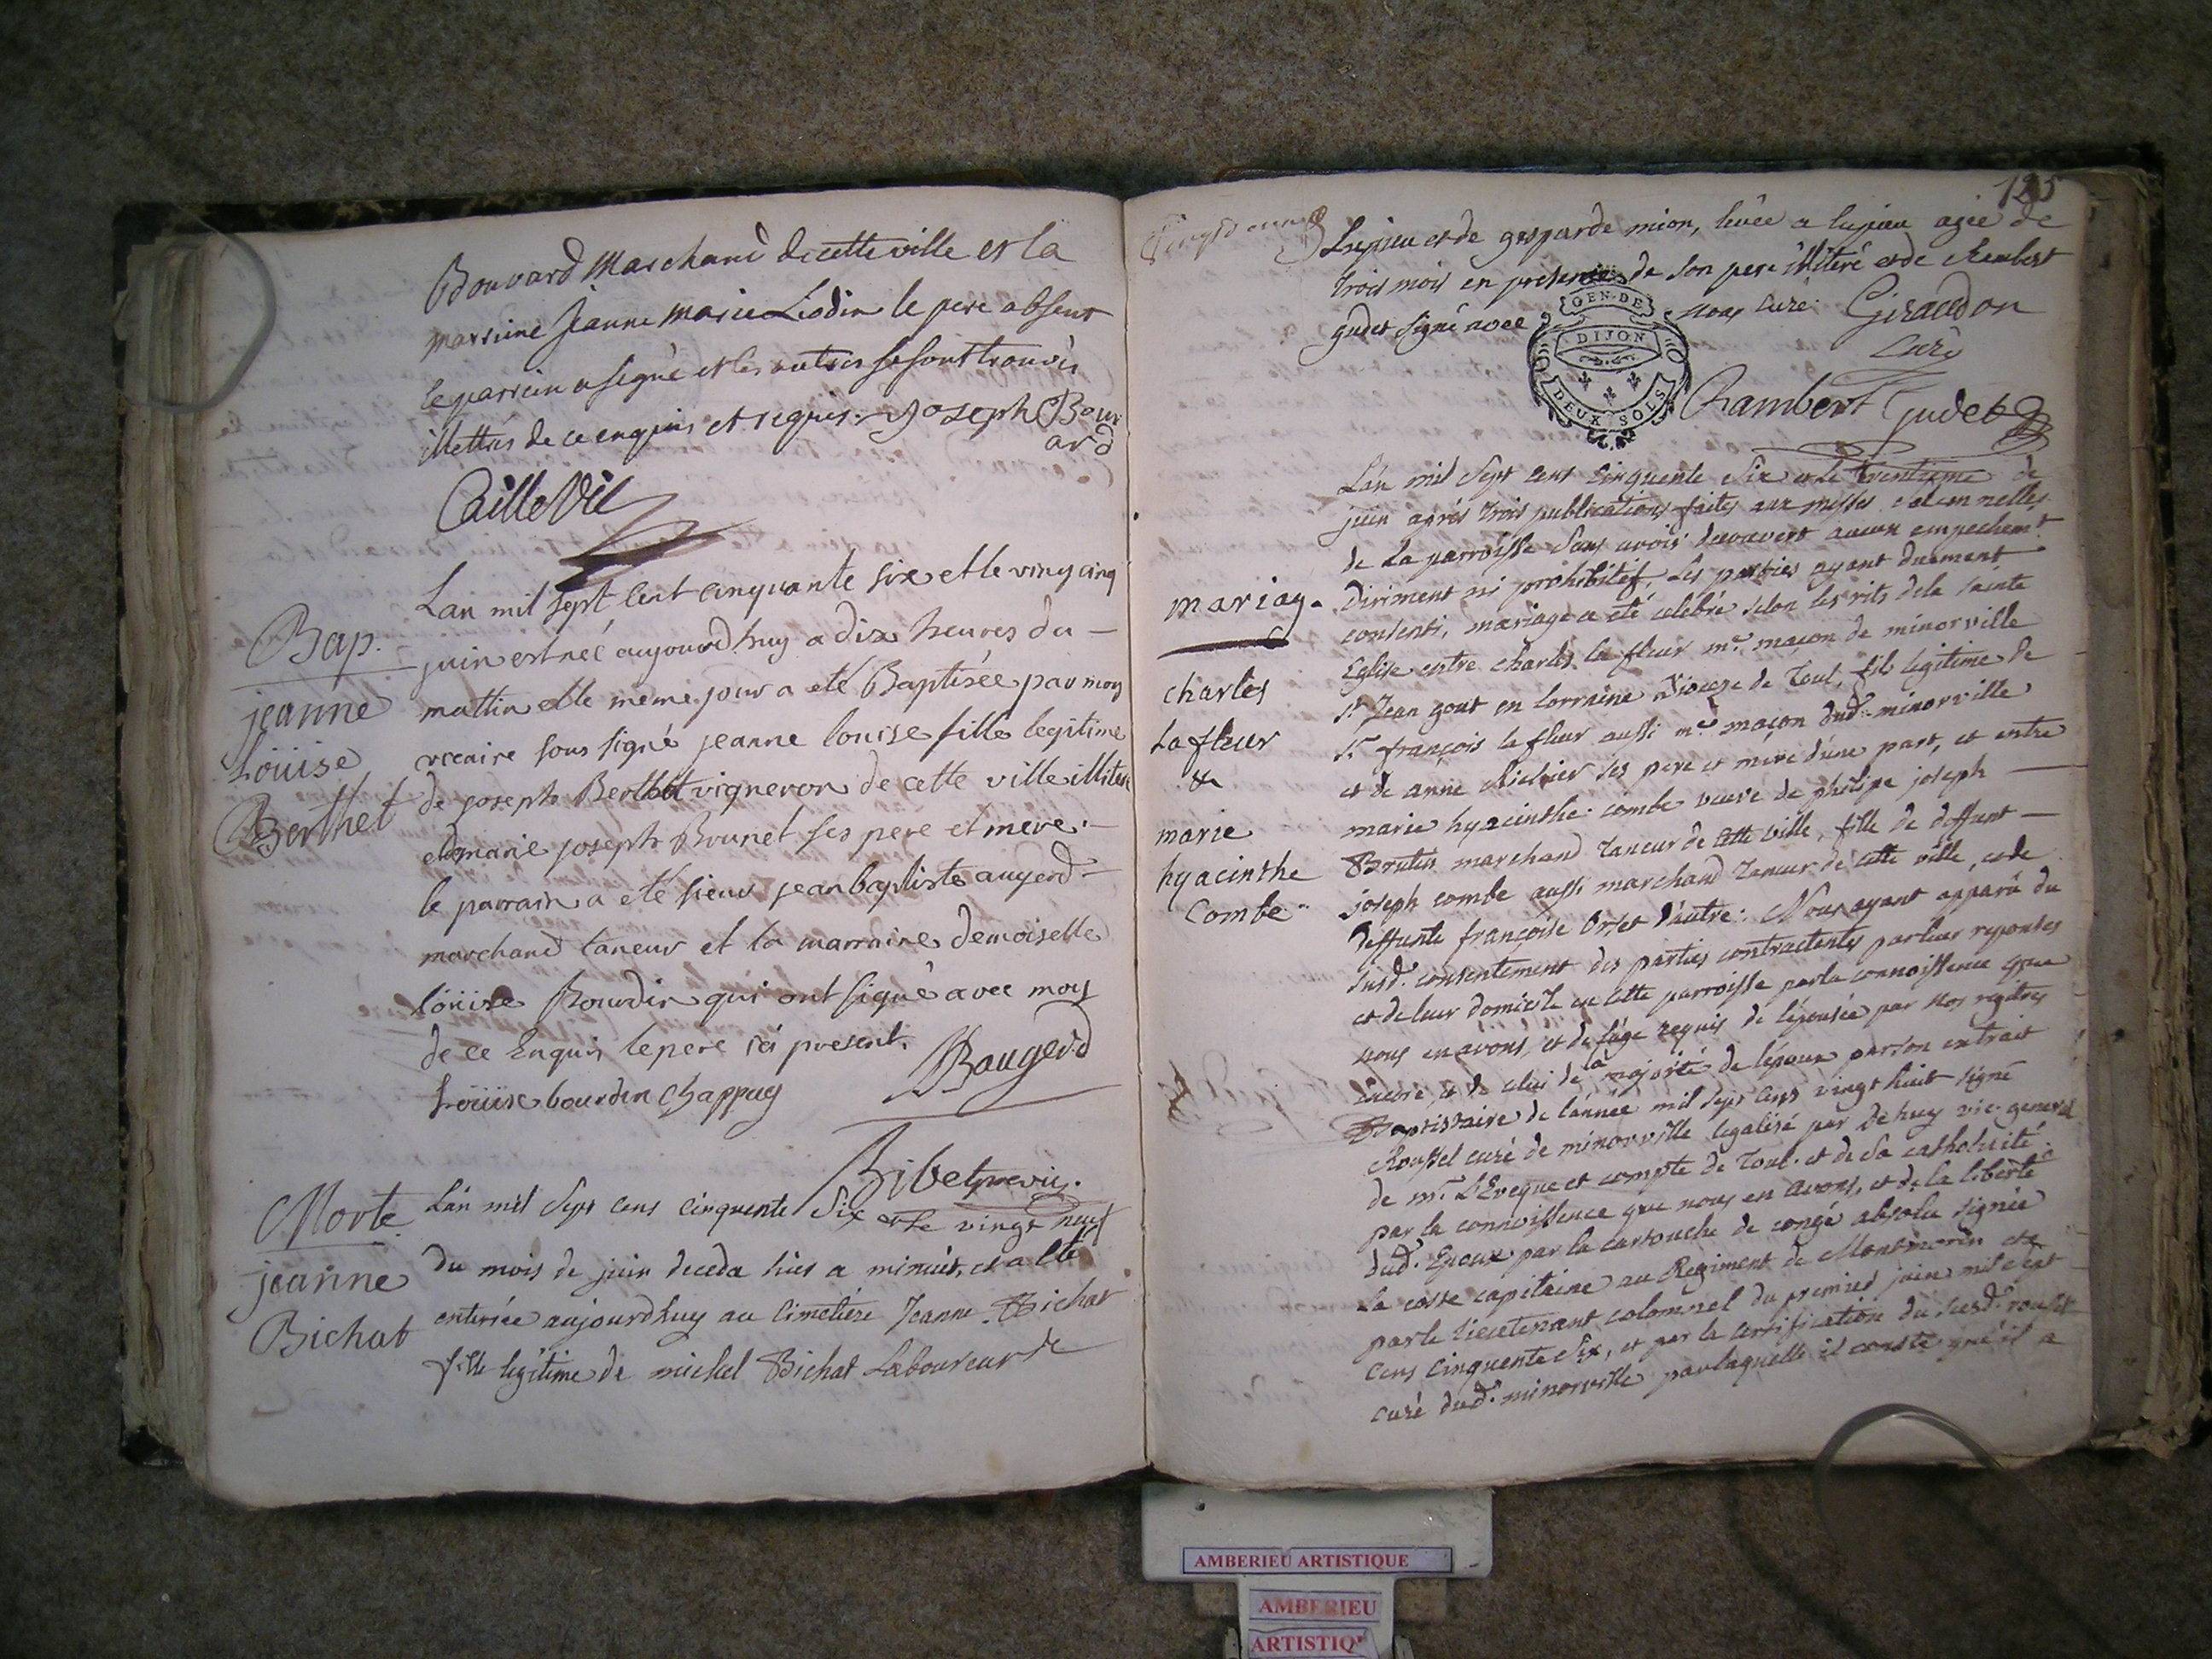 Bouvard Marchand de cette ville et la
marrine Jeanne Marie Liodin le pere absent
le parrin a signé et les autres se sont trouvés
illettrés de ce enquis et requis. Joseph Bouv
ard
Caille Vic
Bap.
jeanne
Löuise
Berthet
Lan mil sept cent cinquante six et le vingt cinq
juin est née aujourdhuy a dix heures du
mattin et le meme jour a eté Baptisée par moy
viccaire sous signé jeanne louise fille legitime
de joseph Berthet vigneron de cette ville illiteré
et de marie joseph Brunet ses pere et mere.
le parrain a eté sieur jean baptiste augerd
marchand taneur et la marraine demoiselle
löuise Bourdin qui ont signé avec moy
de ce Enquis le pere ici present.
Löuise bourdin Chappuy JBaugerd
Ribet vic.
Morte
jeanne
Bichat
Lán mil sept cens cinquente six et le vingt neuf
du mois de juin deceda hier a minuit, et a eté
enterrée aujourdhuy au cimetiére Jeanne Bichat
fille legitime de michel Bichat Laboureur de
125
Lupieu et de gasparde mion, levée a lupieu agée de
trois mois en presence de son pere illiteré et de Rambert
gudet signé avec nous curé. Giraudon
Curé
GEN. DE
DIJON
DEUX SOLS
Rambert Gudet
mariag.
charles
Lafleur
&
marie
hyacinthe
Combe
Lán mil sept cens cinquente six et le trentieme de
juin aprés trois publications faites aux messes solemnelles
de la parroisse sans avoir decouvert aucun empechemt
diriment ni prohibitif, les parties ayant duement
consenti, mariage a eté celebré selon les rits de la sainte
Eglise entre charles la fleur me maçon de minorville
St Jean gout en lorraine Diocese de Toul, fils legitime de
Sr françois la fleur aussi me maçon dud. minorville
et de anne Richier ses pere et mere d'une part, et entre
marie hyacinthe combe veuve de philipe joseph
Brutus marchand taneur de cette ville, fille de deffunt
joseph combe aussi marchand taneur de cette ville, et de
deffunte françoise Orset d'autre: Nous ayant apparu du
susd. consentement des parties contractentes par leurs reponses
et de leur domicile en cette parroisse par la connoissence que
nous en avons, et de l'áge requis de l'épousée par nos régitres
Encore, et de celui de la majorité de l'époux par son extrait
Baptistaire de l'année mil sept cens vingt huit signé
Roussel curé de minorville legalisé par De huy vic. general
de mr. L'Eveque et compte de Toul. et de sa catholicité
par la connoissence que nous en avons, et de la liberté
dud. Epoux par la cartouche de congé absolu signée
La coste capitaine au Regiment de Montmorin et
par le lieutenant colonnel du premier juin mil sept
cens cinquente six, et par la certification du susd. roussel
curé dud. minorville par laquelle il conste qu'il a
AMBERIEU ARTISTIQUE
AMBERIEU
ARTISTIQ